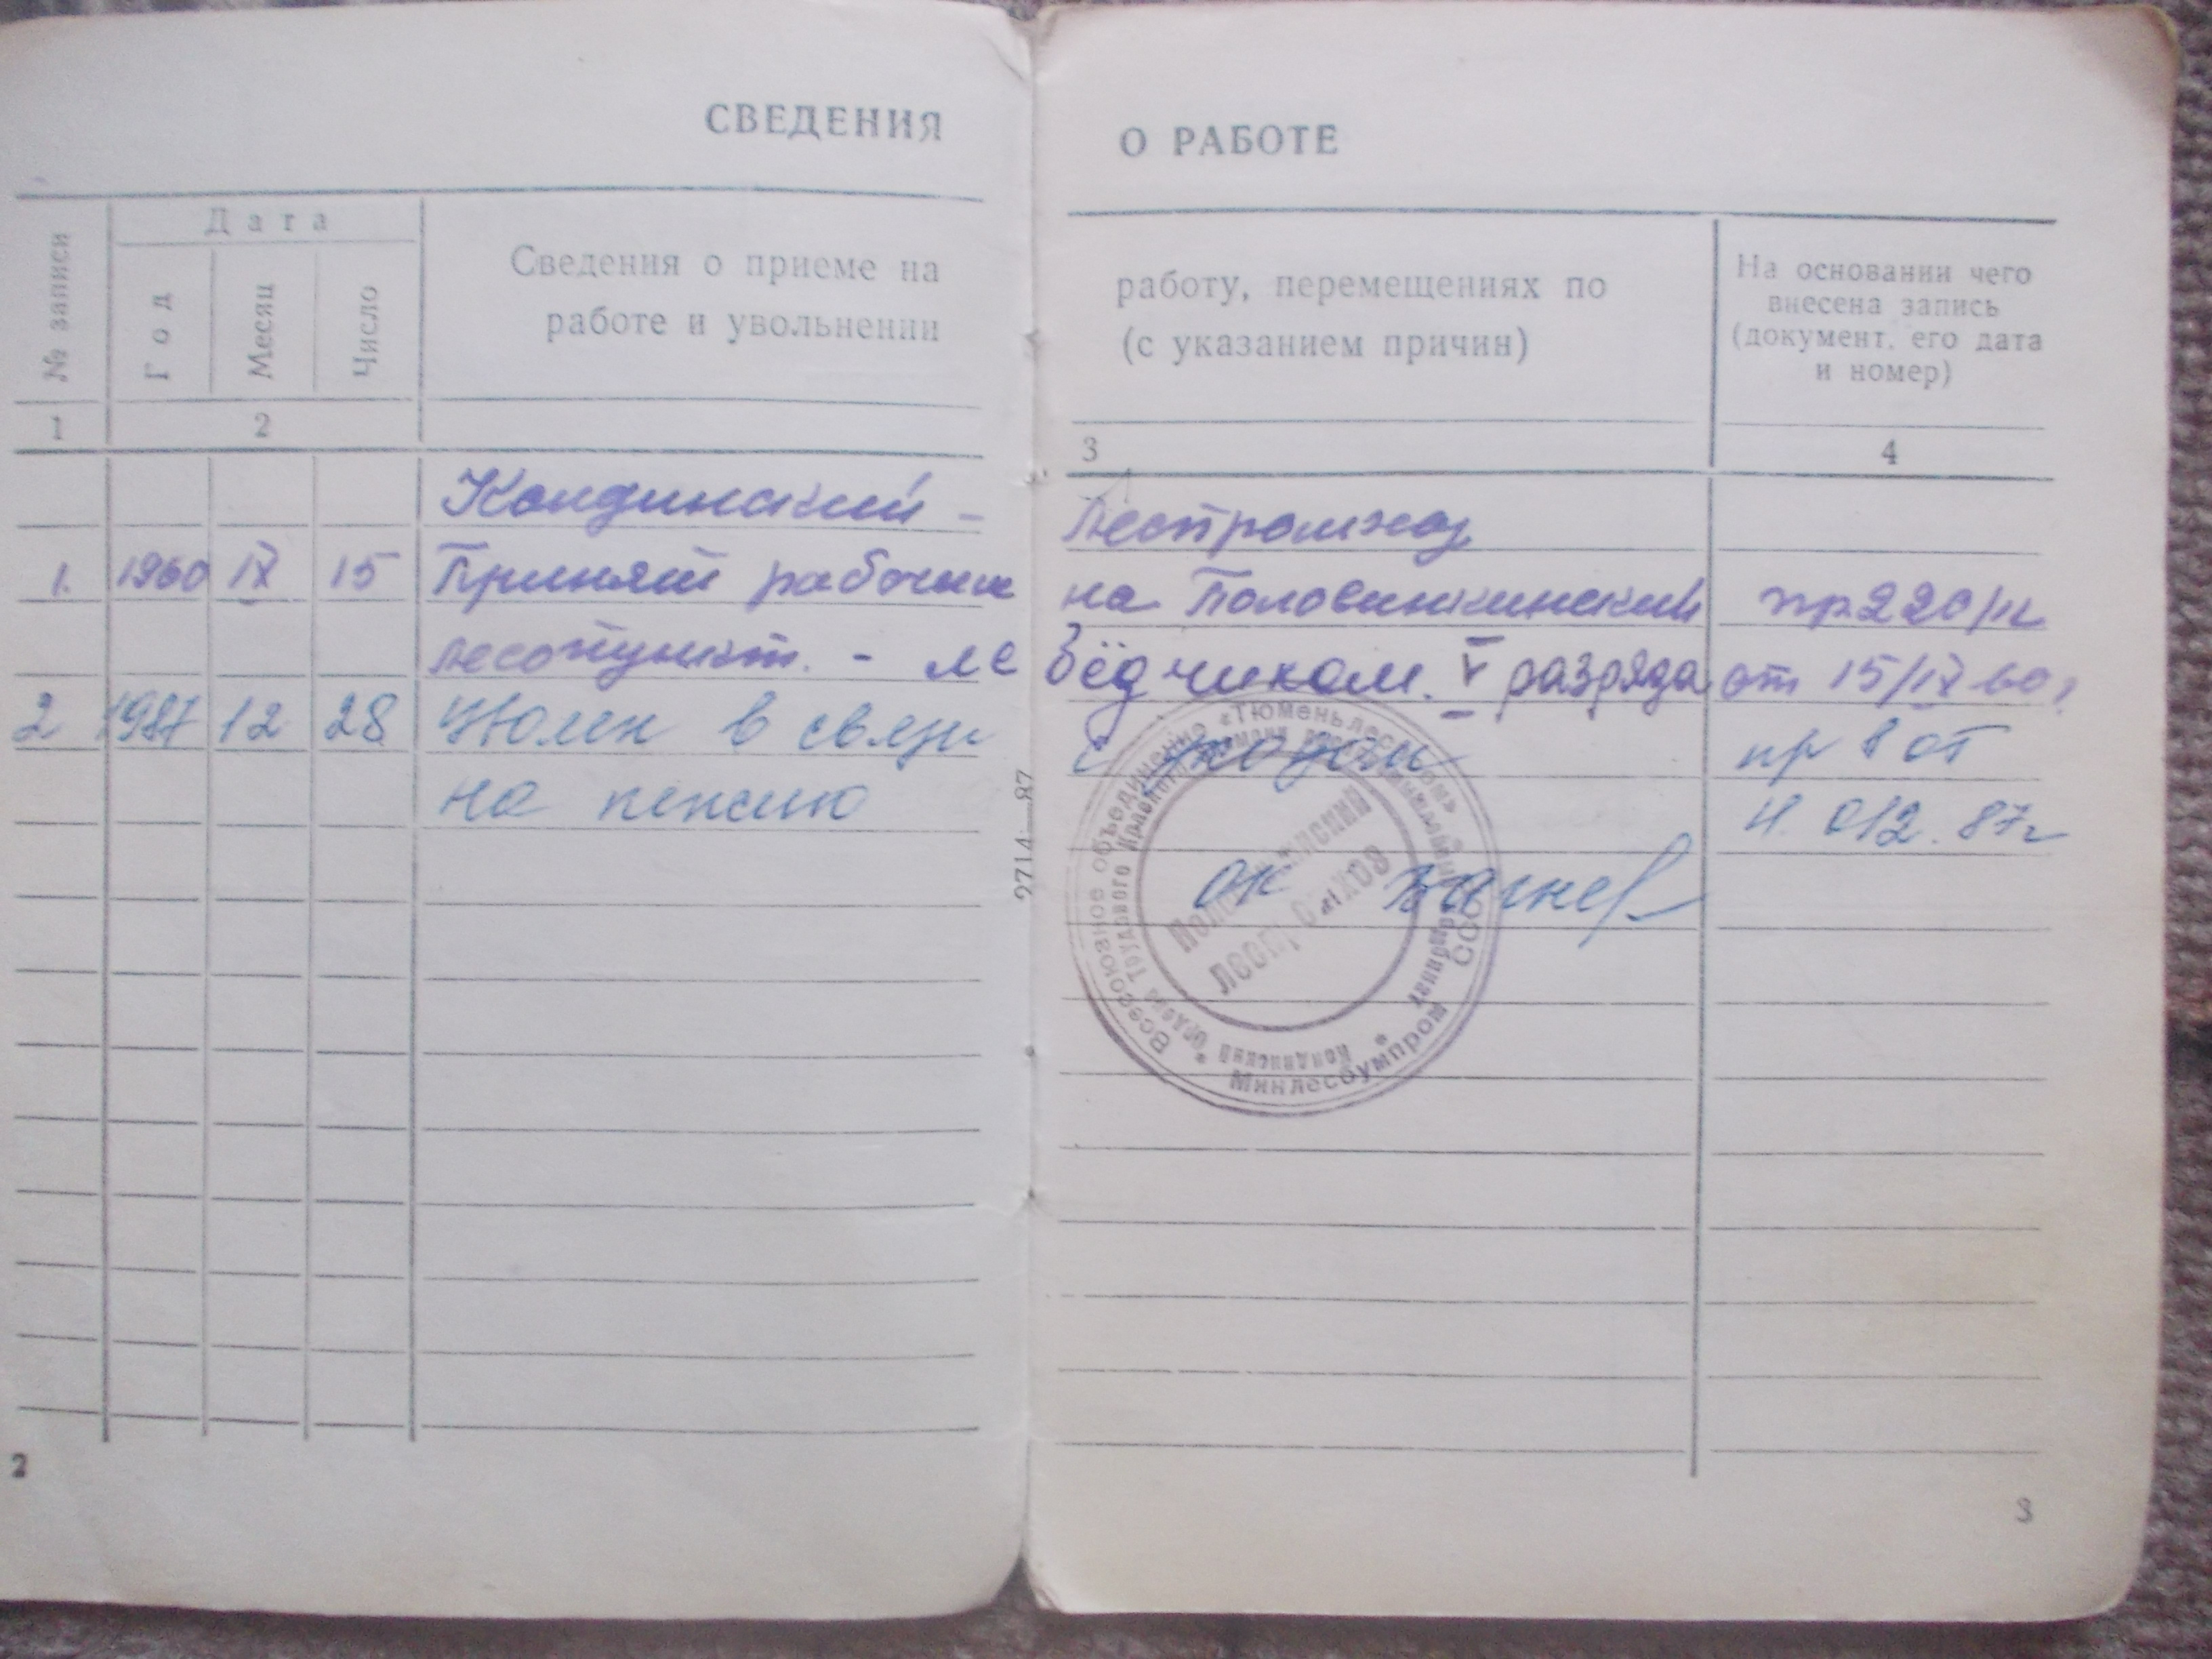 СВЕДЕНИЯ О РАБОТЕ
№ записи
Дата
Год
Месяц
Число
Сведения о приеме на работу, перемещениях по
работе и увольнении (с указанием причин)
На основании чего
внесена запись
(документ, его дата
и номер)
1 2 3 4
Кондинский - леспромхоз
1. 1960 IX 15 Принят рабочим на Половинкинский пр 220/к
лесопункт. - ле V разряда от 15/IX 60г
2 1987 12 28 Уволен в связи с уходом пр 8 от
на пенсию 87г
ок
Всесоюзное объединение «Тюменьлеспром»
Минлесбумпром СССР
Кондинский Ордена Трудового Красного комбинат
леспромхоз
2714—87
2
3